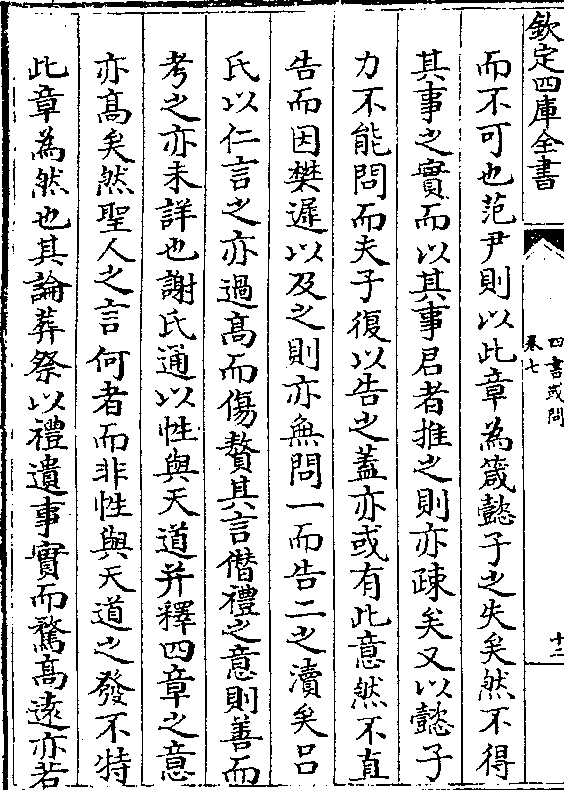 欽定四庫全書
四書或問
卷七
十二
而不可也范尹則以此章為箴懿子之失矣然不得
其事之實而以其事君者推之則亦疎矣又以懿子
力不能問而夫子復以告之蓋亦或有此意然不直
告而因樊遲以及之則亦無問一而告二之瀆矣吕
氏以仁言之亦過髙而傷贅其言僭禮之意則善而
考之亦未詳也謝氏通以性與天道并釋四章之意
亦髙矣然聖人之言何者而非性與天道之發不特
此章為然也其論葬祭以禮遺事實而騖髙遠亦若